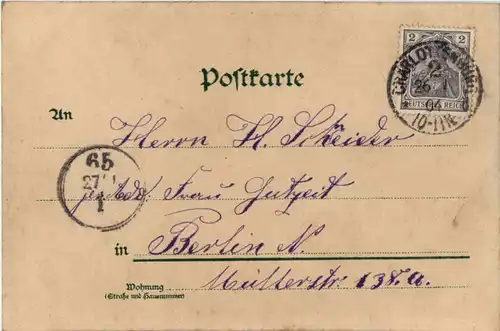 2 2
CHARLOTTENBURG
2
26 1
04
10-11 V.
DEUTSCHES REICH
Postkarte
An
Herrn H. Schneider
65
27 1
1
Frau Gutzeit
in Berlin N.
Müllerstr. 138. a.
Wohnung
(Straße und Hausnummer)